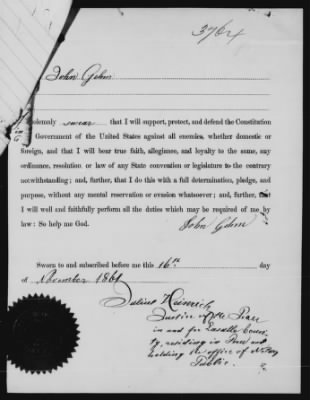 3764
John Gehm
solemnly swear that I will support, protect, and defend the Constitution
Government of the United States against all enemies, whether domestic or
foreign, and that I will bear true faith, allegiance, and loyalty to the same, any
ordinance, resolution or law of any State convention or legislature to the contrary
notwithstanding; and, further, that I do this with a full determination, pledge, and
purpose, without any mental reservation or evasion whatsoever; and, further, that
I will well and faithfully perform all the duties which may be required of me by
law: So help me God.
John Gehm
Sworn to and subscribed before me this 16th day
of November 1861
Julius Heinrich
Justice of the Peace
in and for Lasalle Coun-
ty, residing in Peru and
holding the office of Notary
Public.